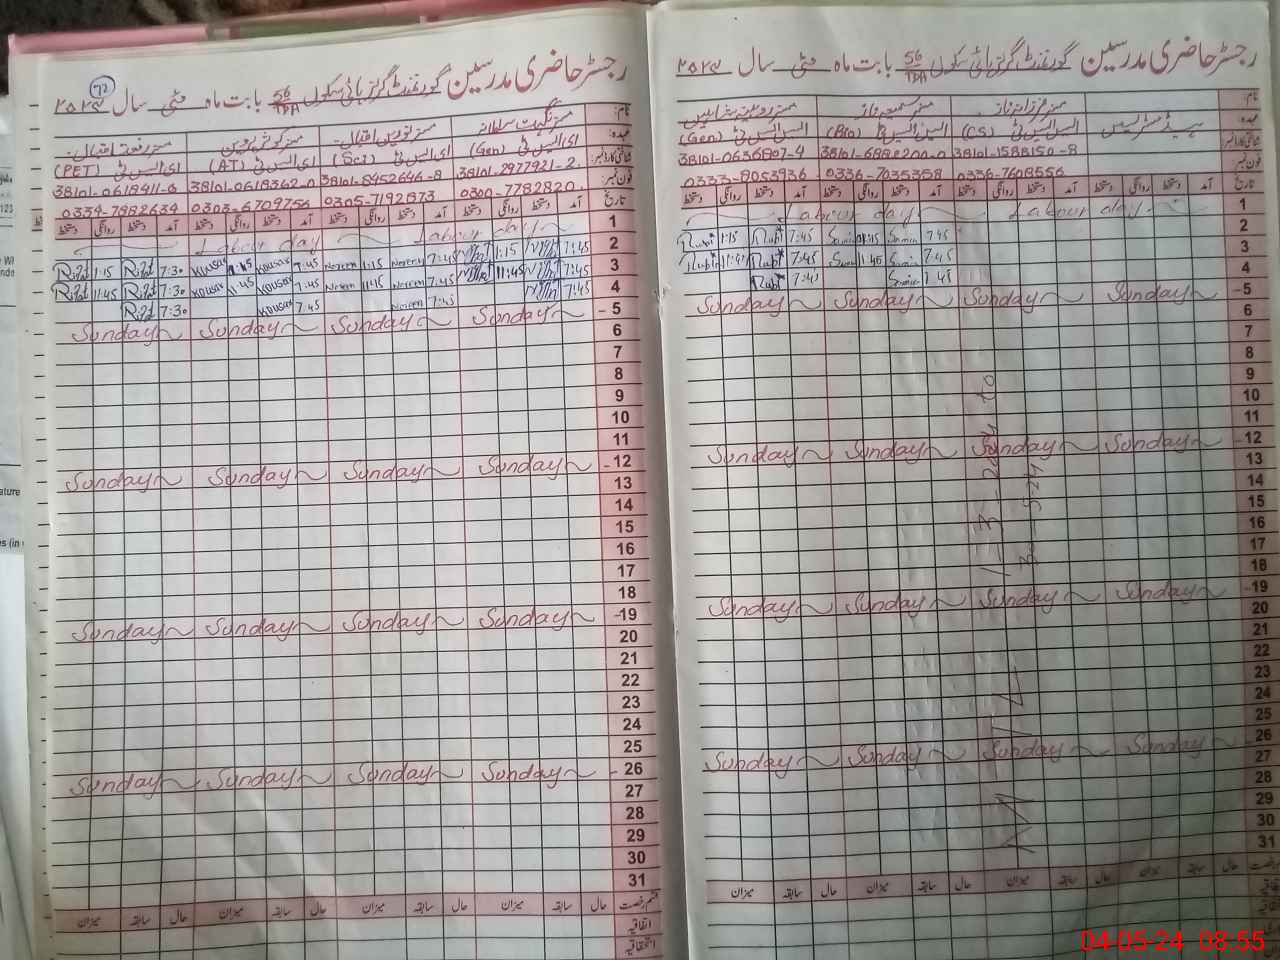 رجسٹر حاضری مدرسین گورنمنٹ گرلز ہائی سکول 56/TDA بابت ماہ مئی سال ۲۰۲۴
نام:
عہدہ:
شناختی کارڈ نمبر:
فون نمبر:
مسز نگہت سلطانہ
مسز نورین اقبال
مسز کوثر پروین
مسز رفعت اقبال
ای ایس ٹی (Gen)
ای ایس ٹی (Sci)
ای ایس ٹی (AT)
ای ایس ٹی (PET)
38101-2977921-2
38101-8952646-8
38101-0618362-0
38101-0618411-6
0300-7782820
0305-7192873
0303-6709756
0334-7982634
تاریخ آمد دستخط روانگی دستخط آمد دستخط روانگی دستخط آمد دستخط روانگی دستخط آمد دستخط روانگی دستخط
1 Labour day Labour day
2 7:45 1:15 7:45 Noreen 1:15 Noreen 7:45 Kousar 1:15 Kousar 7:30 Rifat 1:15 Rifat
3 7:45 11:45 7:45 Noreen 11:45 Noreen 7:45 Kousar 11:45 Kousar 7:30 Rifat 11:45 Rifat
4 7:45 7:45 Noreen 7:45 Kousar 7:30 Rifat
5 Sunday Sunday Sunday Sunday
6
7
8
9
10
11
12 Sunday Sunday Sunday Sunday
13
14
15
16
17
18
19 Sunday Sunday Sunday Sunday
20
21
22
23
24
25
26 Sunday Sunday Sunday Sunday
27
28
29
30
31
قسم رخصت حال سابقہ میزان حال سابقہ میزان حال سابقہ میزان حال سابقہ میزان
اتفاقیہ
استحقاقیہ
رجسٹر حاضری مدرسین گورنمنٹ گرلز ہائی سکول 56/TDA بابت ماہ مئی سال ۲۰۲۴
نام:
عہدہ:
شناختی کارڈ نمبر:
فون نمبر:
ہیڈ مسٹریس
مسز فرزانہ ناز
مسز سمیعہ ناز
مسز روبینہ شاہین
ایس ایس ٹی (CS)
ایس ایس ٹی (Bio)
ایس ایس ٹی (Gen)
38101-1588150-8
38101-6882200-0
38101-0636807-4
0336-7608556
0336-7035358
0333-8053936
تاریخ آمد دستخط روانگی دستخط آمد دستخط روانگی دستخط آمد دستخط روانگی دستخط آمد دستخط روانگی دستخط
1 Labour day Labour day
2 7:45 Samin 11:45 Samin 7:45 Rubi 1:15 Rubi
3 7:45 Samin 11:45 Samin 7:45 Rubi 11:45 Rubi
4 7:45 Samin 7:45 Rubi
5 Sunday Sunday Sunday Sunday
6
7
8
9
10
11
12 Sunday Sunday Sunday Sunday
13
14
15
16
17
18
19 Sunday Sunday Sunday Sunday
20
21
22
23
24
25
26 Sunday Sunday Sunday Sunday
27
28
29
30
31
حال سابقہ میزان حال سابقہ میزان حال سابقہ میزان حال سابقہ میزان
04-05-24 08:55